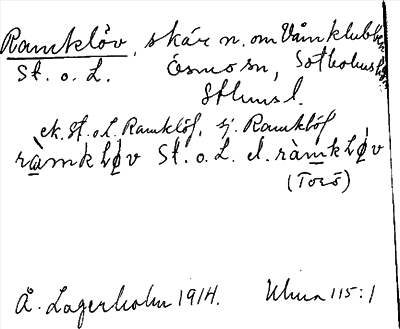 Ramklöv, skär n. om Vämklubben
St. o. L. Ösmo sn, Sotholms hd
Sthms l.
ek. St. o. L. Ramklöf, sj. Ramklöf
ràmkløv St. o. L. el. ràmkløv
(Torö)
Å. Lagerholm 1914. Uhma 115:1